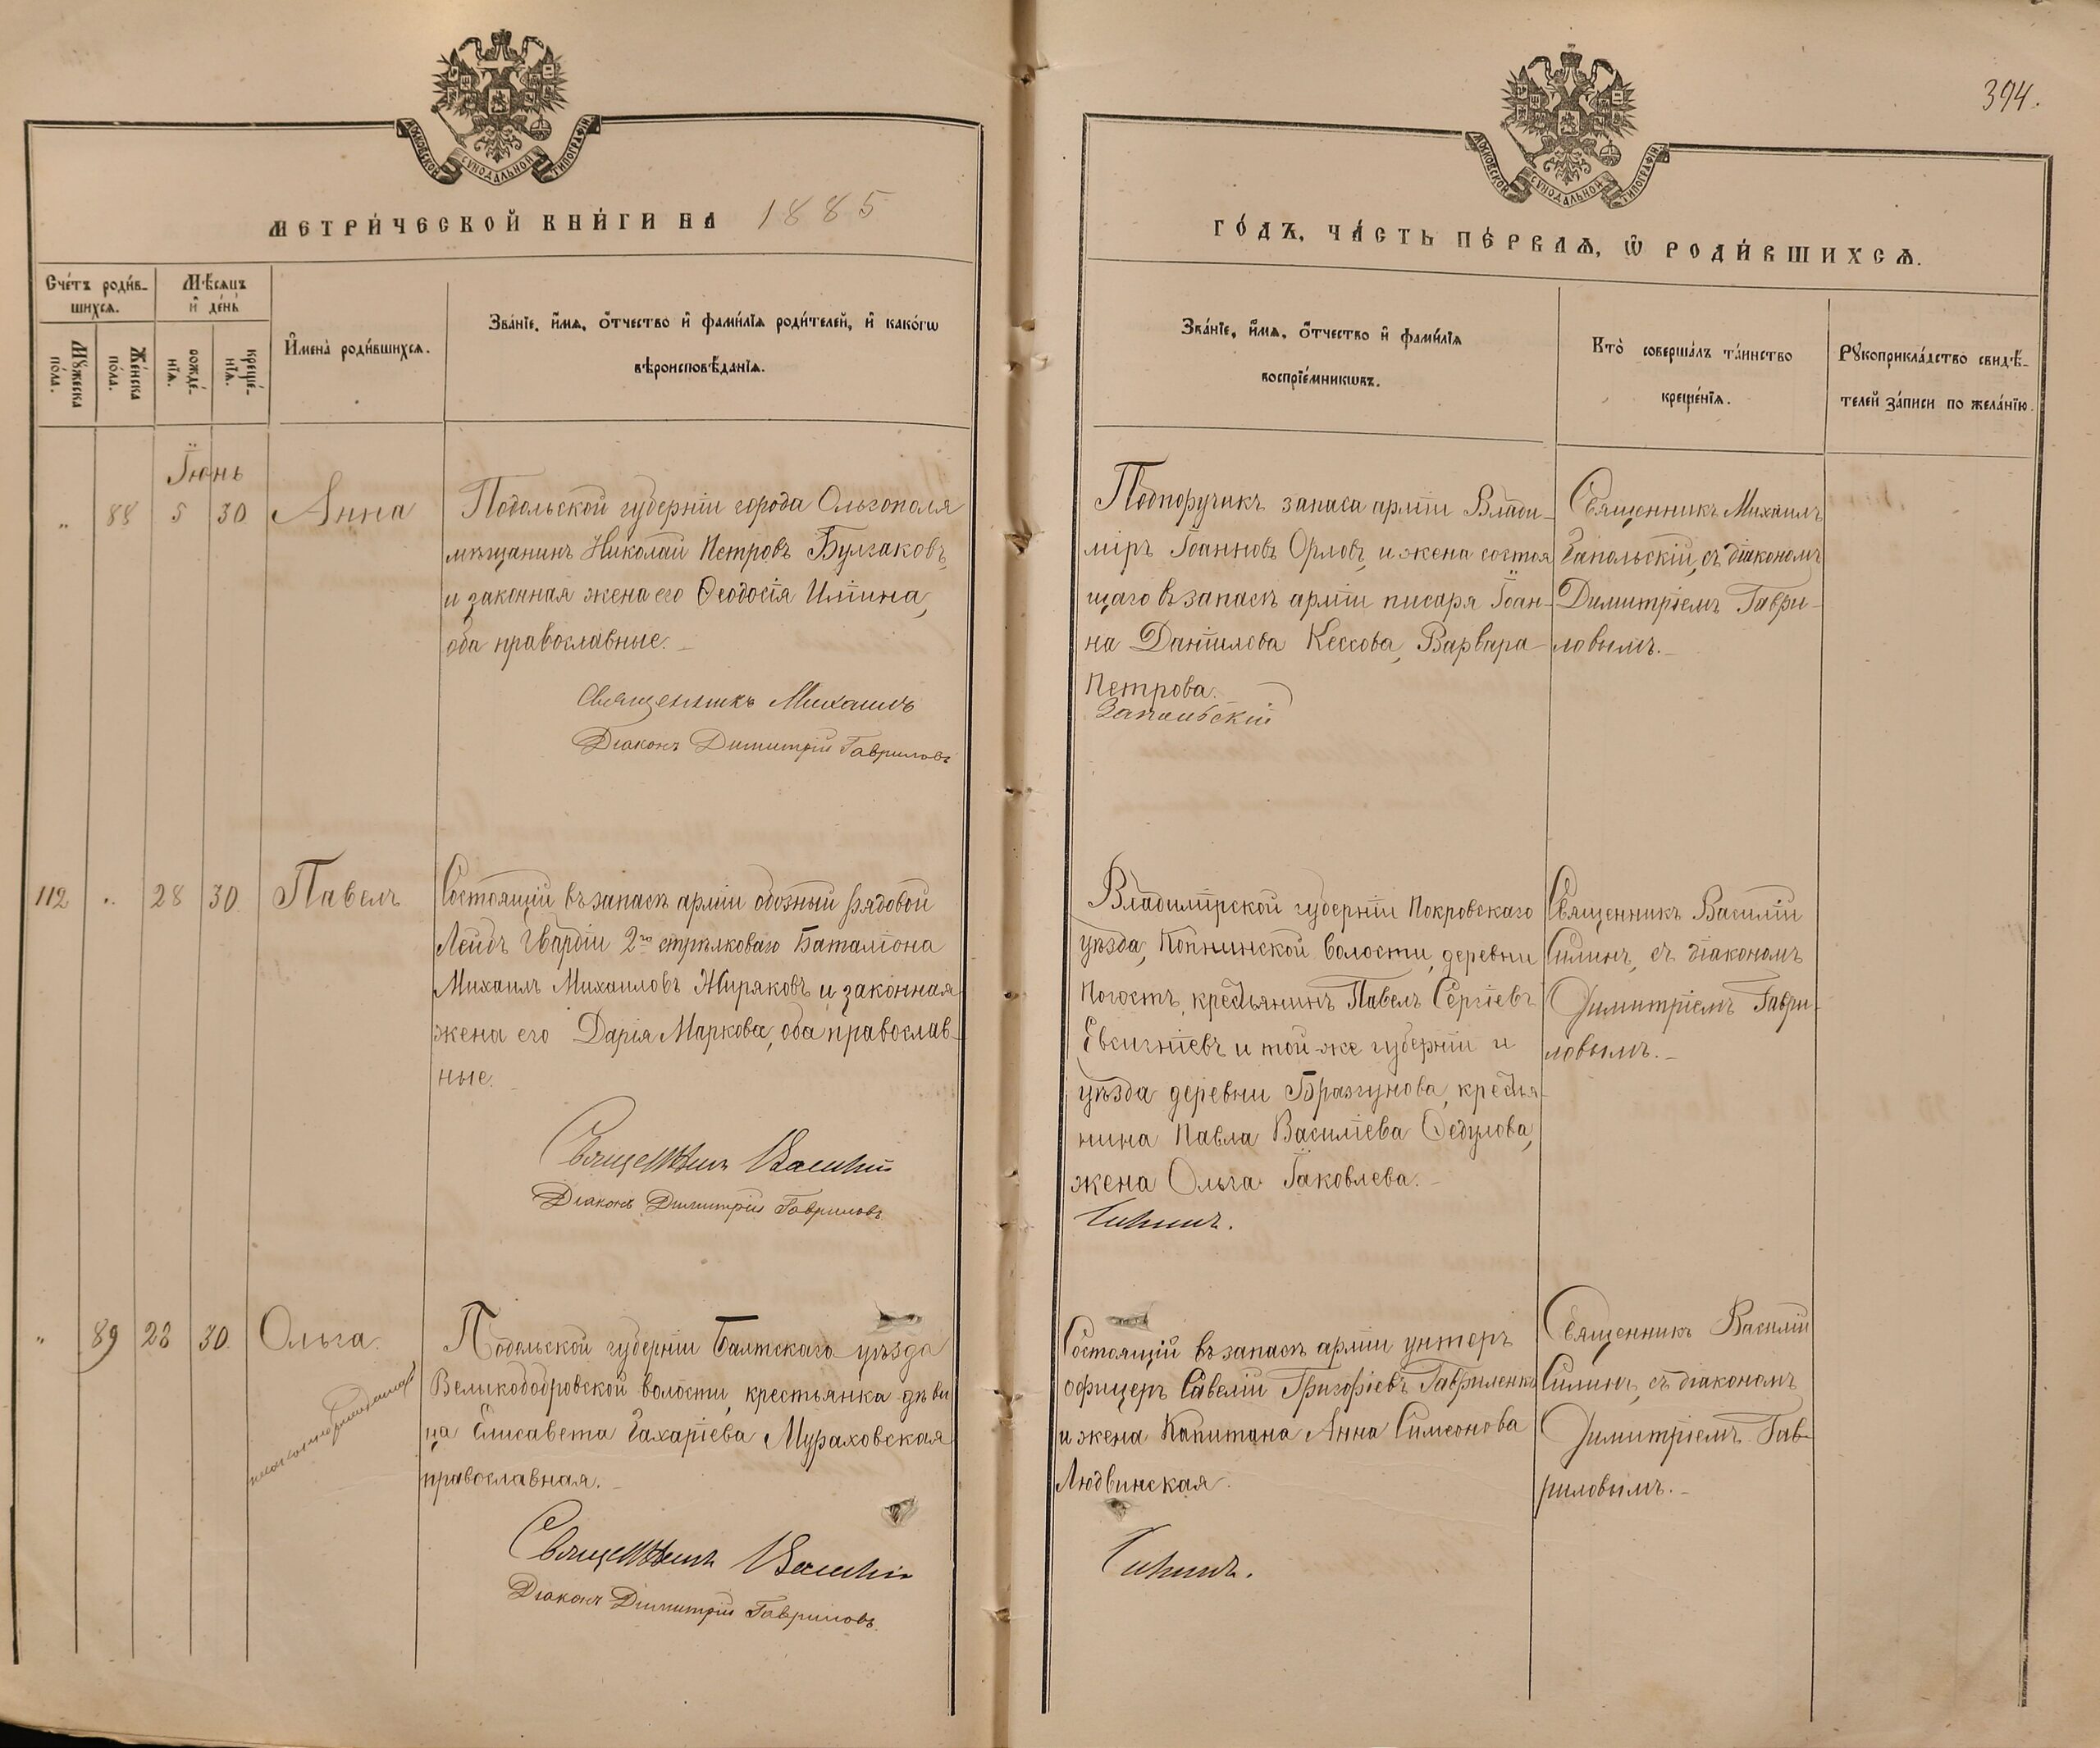 394.
МОСКОВСКОЙ СѴНОДАЛЬНОЙ ТИПОГРАФІИ
МОСКОВСКОЙ СѴНОДАЛЬНОЙ ТИПОГРАФІИ
МЕТРИ́ЧЕСКОЙ КНИ́ГИ НА 1885
ГО́ДЪ, ЧА́СТЬ ПЕ́РВАѦ, Ѡ҆ РОДИ́ВШИХСѦ.
Сче́тъ роди́в-
шихсѧ.
Мꙋ́жеска по́ла.
Же́нска по́ла.
Мѣ́сѧцъ
и҆ де́нь
рожде́-
нїѧ.
креще́-
нїѧ.
И҆мена̀ роди́вшихсѧ.
Зва́нїе, и҆́мѧ, ѻ҆́тчество и҆ фами́лїѧ роди́телей, и҆ како́гѡ
вѣроисповѣ́данїѧ.
Зва́нїе, и҆́мѧ, ѻ҆́тчество и҆ фами́лїѧ
воспрїе́мникѡвъ.
Кто̀ соверша́лъ та́инство
креще́нїѧ.
Рꙋкоприкла́дство свидѣ́-
телей за́писи по жела́нїю.
Іюнь
„ 88 5 30 Анна
Подольской губерніи города Ольгополя
мѣщанинъ Николай Петровъ Булгаковъ,
и законная жена его Ѳеодосія Иліина,
оба православные.
Священникъ Михаилъ
Діаконъ Димитрій Гавриловъ
Подпоручикъ запаса арміи Влади-
міръ Іоанновъ Орловъ, и жена состоя
щаго въ запасѣ арміи писаря Іоан-
на Даніилова Кессова, Варвара
Петрова.
Запольскій
Священникъ Михаилъ
Запольскій, съ діакономъ
Димитріемъ Гаври-
ловымъ.
112 „ 28 30 Павелъ
Состоящій въ запасѣ арміи обозный рядовой
Лейбъ Гвардіи 2го стрѣлковаго Баталіона
Михаилъ Михаиловъ Жиряковъ и законная
жена его Дарія Маркова, оба православ-
ные.
Священникъ Василій
Діаконъ Димитрій Гавриловъ
Владимірской губерніи Покровскаго
уѣзда, Копнинской волости, деревни
Погостъ, крестьянинъ Павелъ Сергіевъ
Евсигніевъ и той-же губерніи и
уѣзда деревни Бразгунова, крестья-
нина Павла Василіева Ѳедулова,
жена Ольга Іаковлева.
Силинъ.
Священникъ Василій
Силинъ, съ діакономъ
Димитріемъ Гаври-
ловымъ.
„ 89 23 30 Ольга.
Подольской губерніи Балтскаго уѣзда
Великобобровской волости, крестьянка дѣви
ца Елисавета Захаріева Мураховская
православная.
Священникъ Василій
Діаконъ Димитрій Гавриловъ
Состоящій въ запасѣ арміи унтеръ
офицеръ Савелій Григоріевъ Гавриленко
и жена Капитана Анна Симеонова
Людвинская.
Силинъ.
Священникъ Василій
Силинъ, съ діакономъ
Димитріемъ Гав-
риловымъ.